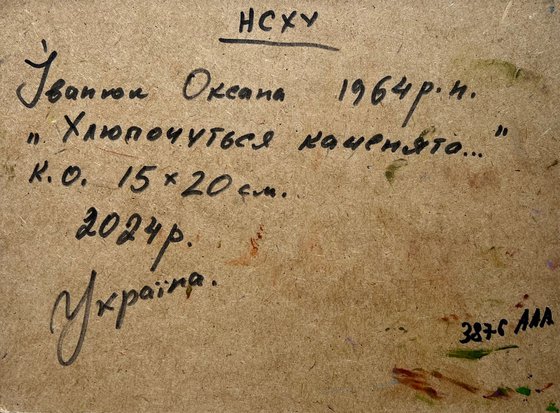 НСХУ
Іванюк Оксана 1964р.н.
„Хлюпочуться каченята..."
к.о. 15×20см.
2024р.
Україна.
387б ААА